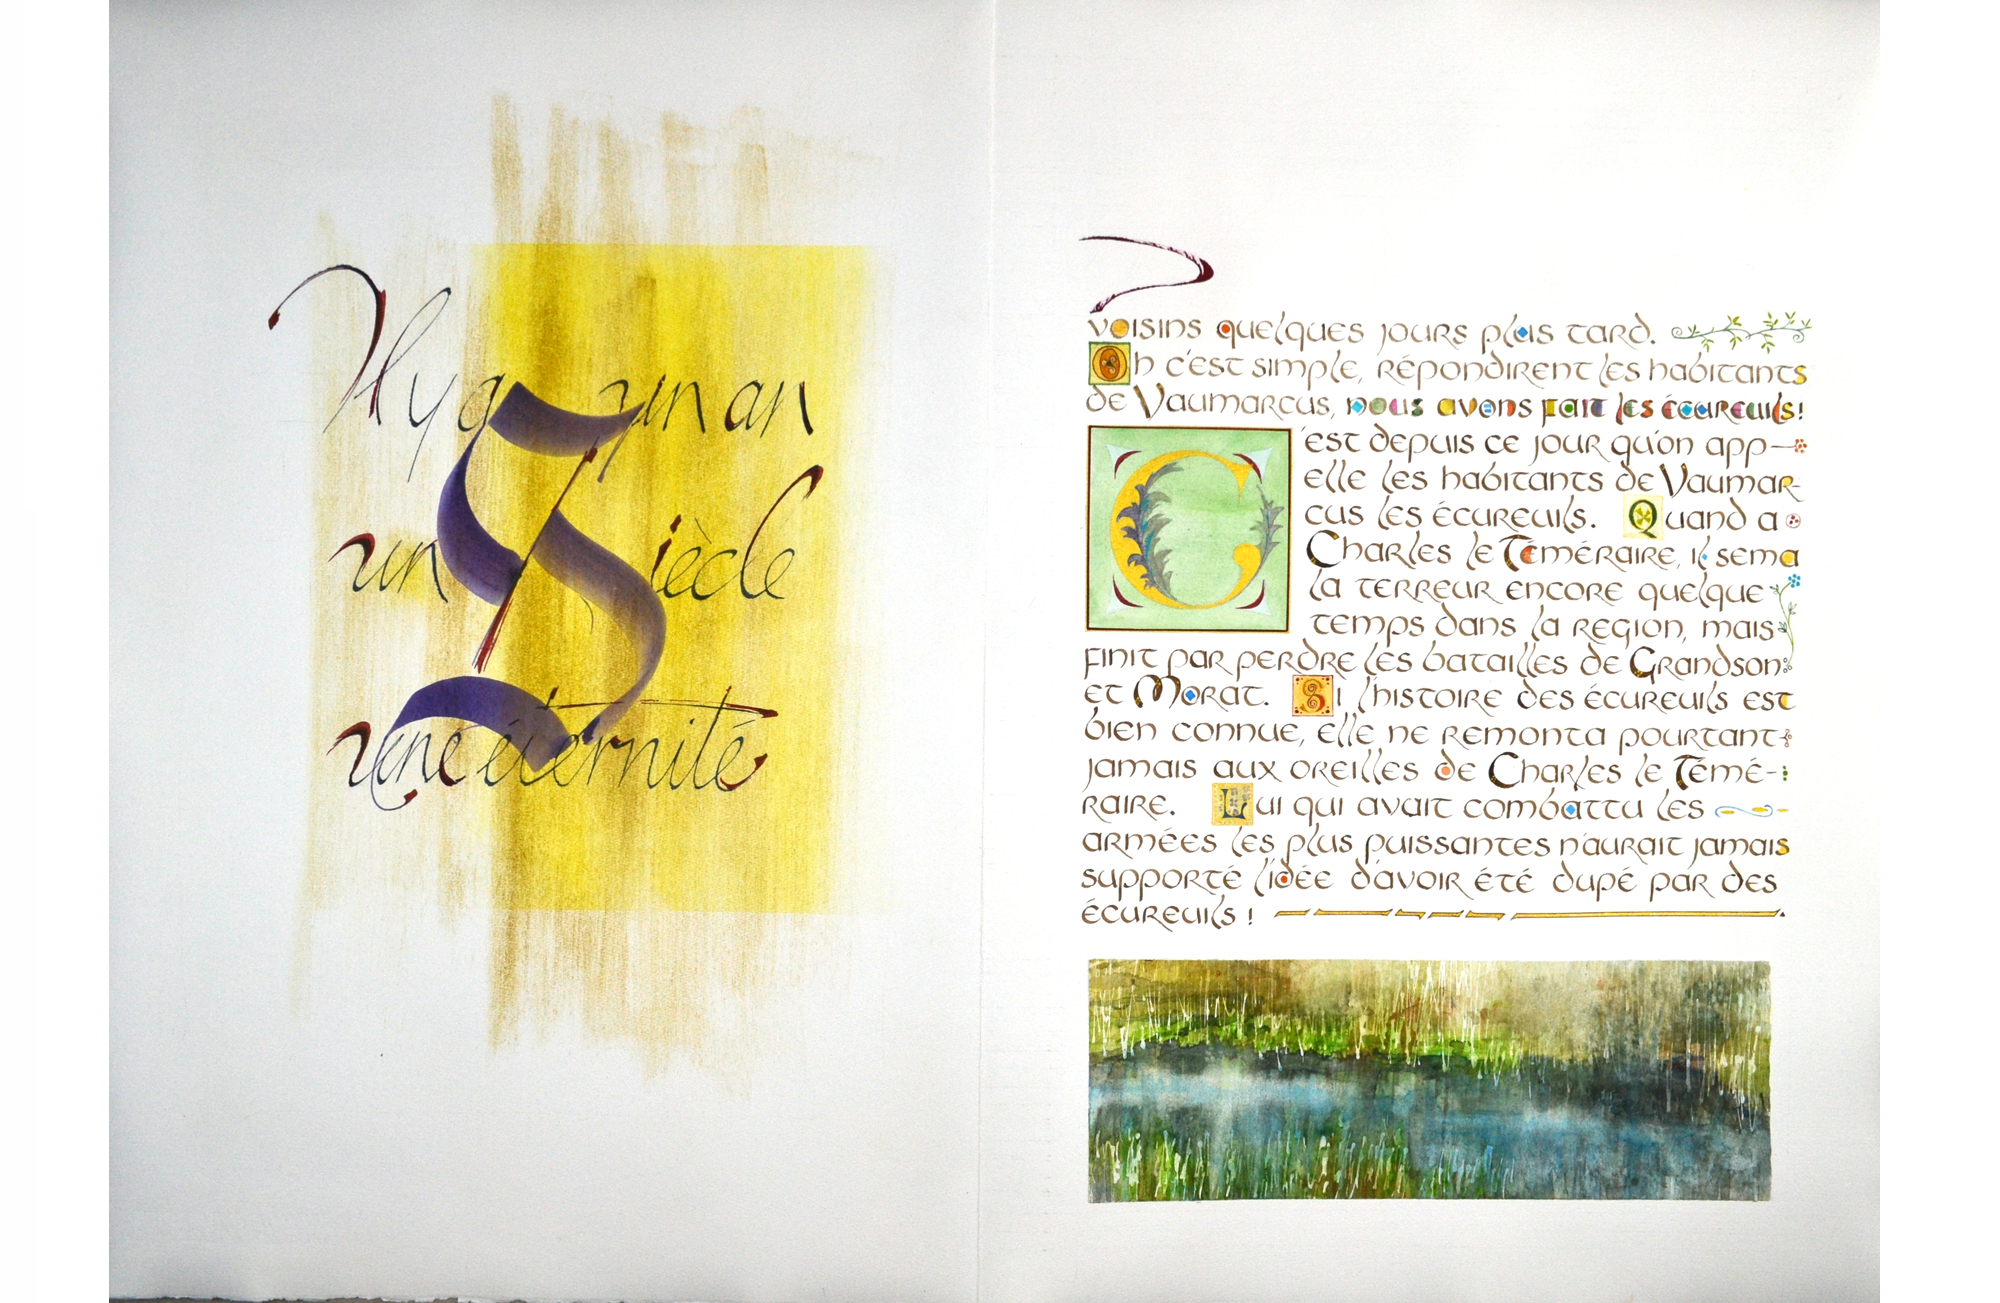 Il y a un an
un Siècle
une éternité
voisins quelques jours plus tard.
Oh c'est simple, répondirent les habitants
de Vaumarcus, nous avons fait les écureuils!
C'est depuis ce jour qu'on app-
elle les habitants de Vaumar-
cus les écureuils. Quand a
Charles le Téméraire, il sema
la terreur encore quelque
temps dans la region, mais
finit par perdre les batailles de Grandson
et Morat. Si l'histoire des écureuils est
bien connue, elle ne remonta pourtant
jamais aux oreilles de Charles le Témé-
raire. Lui qui avait combattu les
armées les plus puissantes n'aurait jamais
supporté l'idée d'avoir été dupé par des
écureuils !